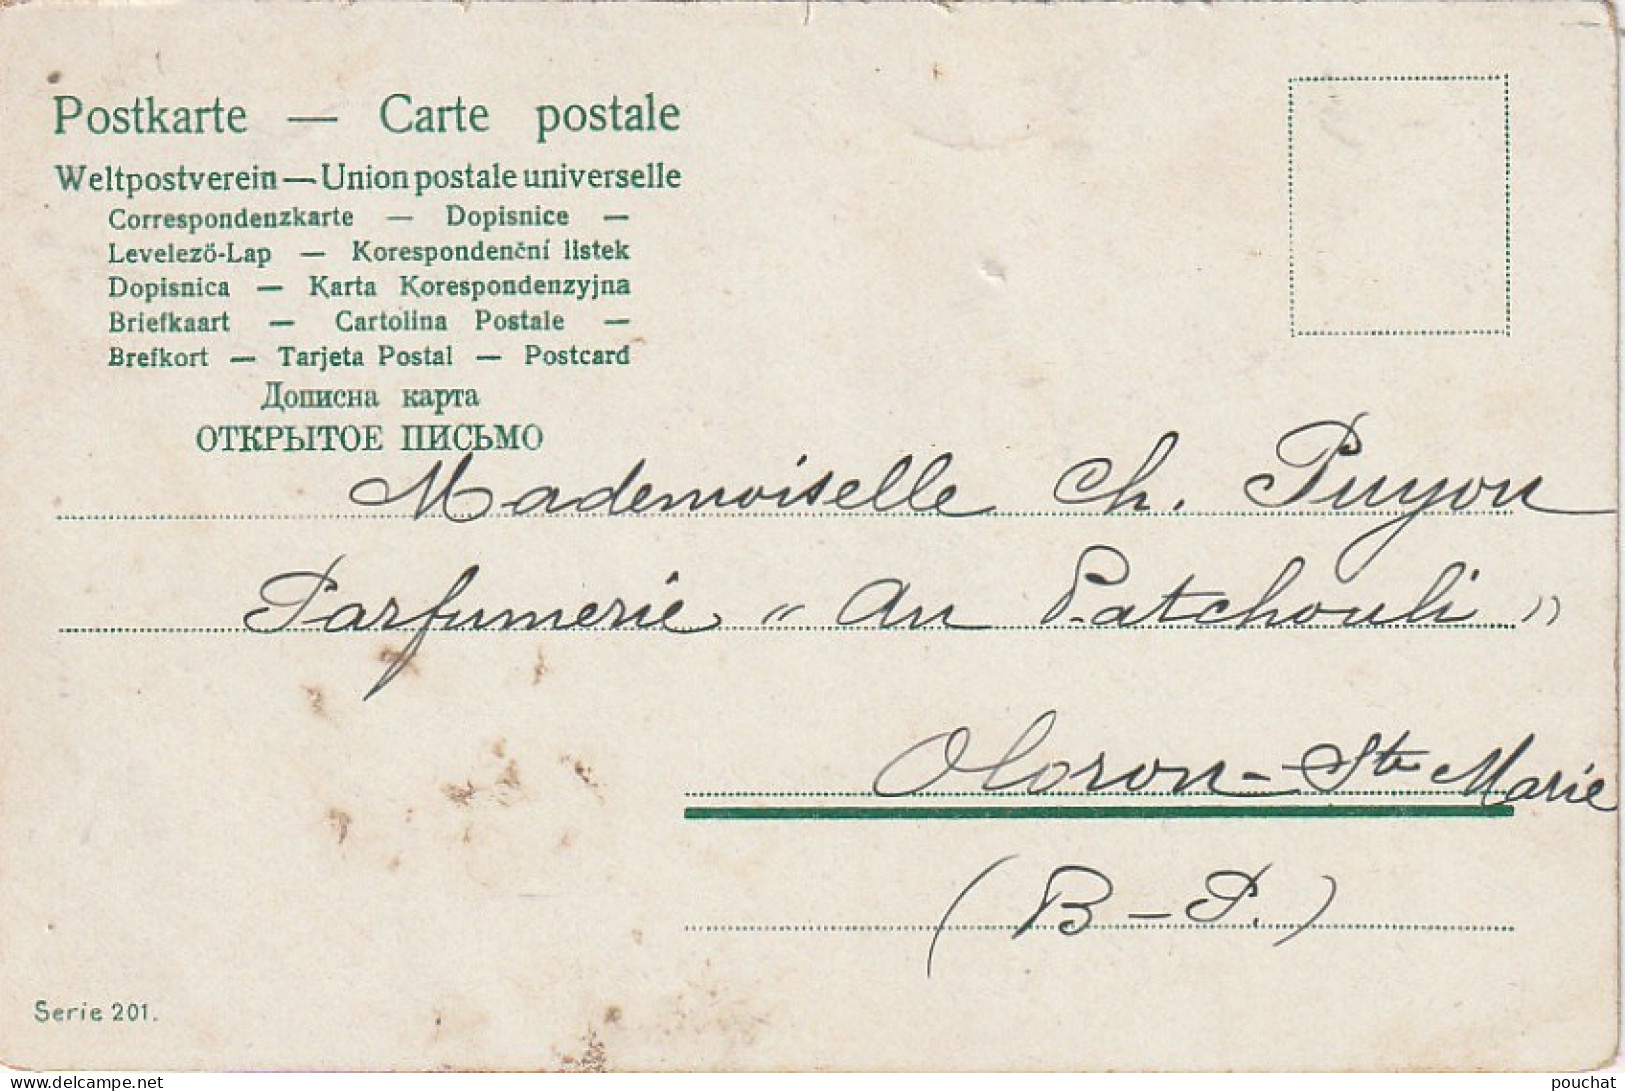 Postkarte — Carte postale
Weltpostverein — Union postale universelle
Correspondenzkarte — Dopisnice —
Levelező-Lap — Korespondenční listek
Dopisnica — Karta Korespondenzyjna
Briefkaart — Cartolina Postale —
Brefkort — Tarjeta Postal — Postcard
Дописна карта
ОТКРЫТОЕ ПИСЬМО
Mademoiselle Ch. Puyou
Parfumerie "Au Patchouli"
Oloron-Ste Marie
(B-P.)
Serie 201.
www.delcampe.net
pouchat